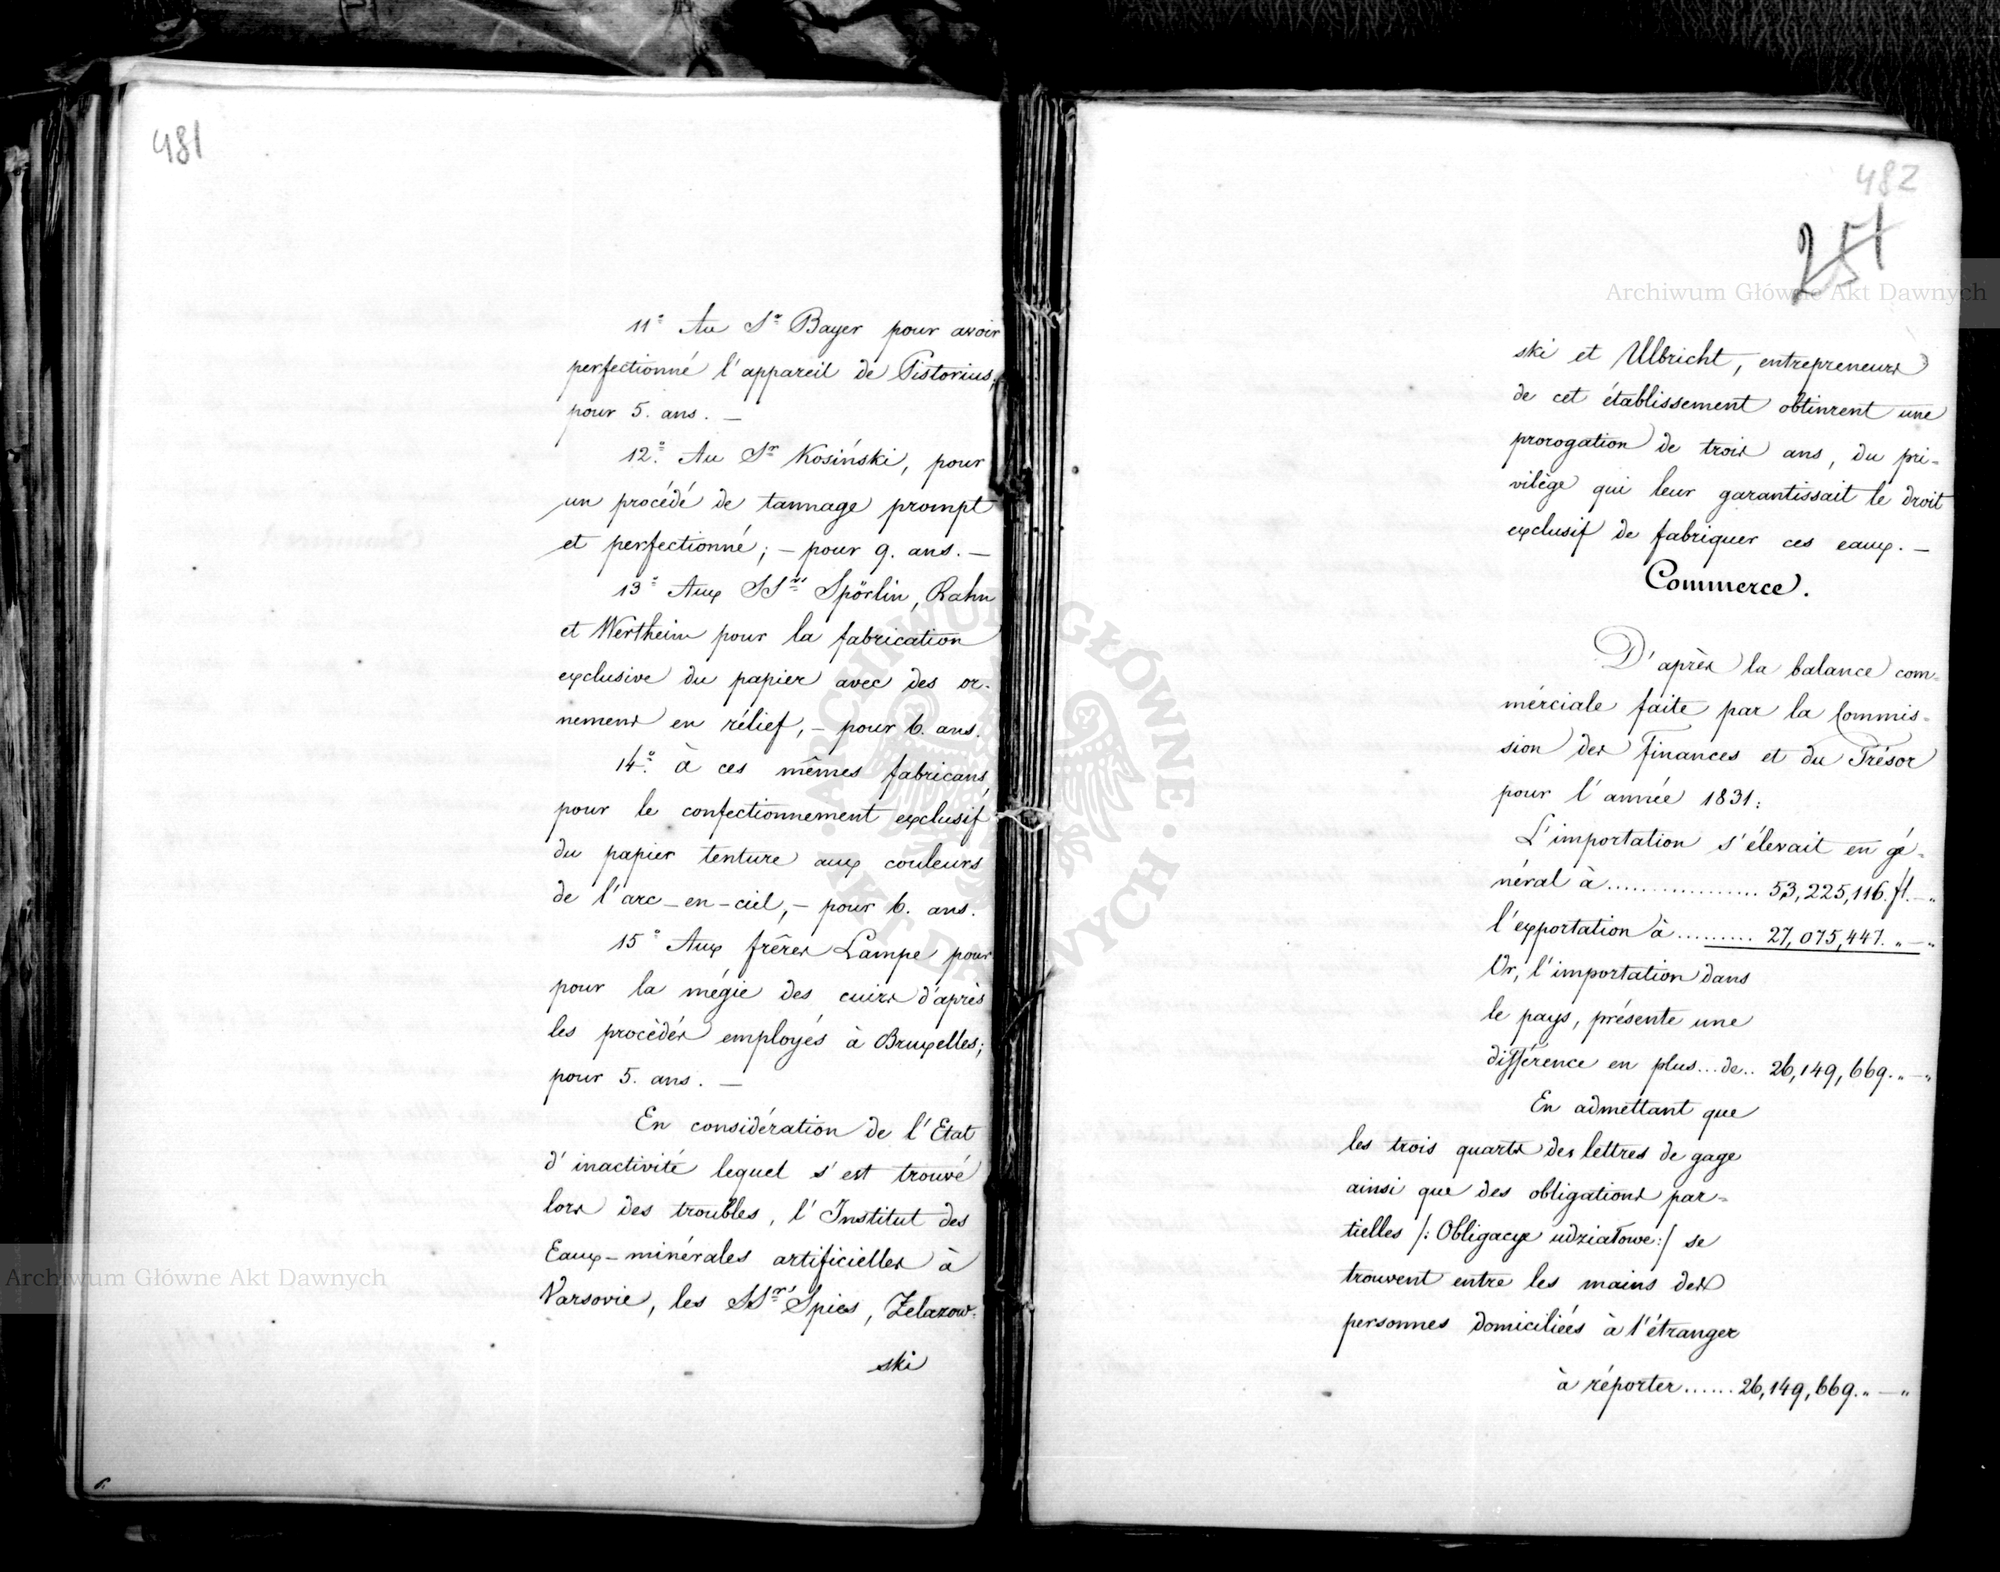 481
11° Au Sr Bayer pour avoir
perfectionné l'appareil de Pistorius,
pour 5. ans. —
12° Au Sr Kosiński, pour
un procédé de tannage prompt
et perfectionné; — pour 9. ans. —
13° Aux SSrs Spörlin, Rahn
et Wertheim pour la fabrication
exclusive du papier avec des or-
nemens en rélief, — pour 6. ans.
14° à ces mêmes fabricans,
pour le confectionnement exclusif
du papier tenture aux couleurs
de l'arc-en-ciel, — pour 6. ans.
15° Aux frères Lampe pour
pour la mégie des cuirs d'après
les procédés employés à Bruxelles;
pour 5. ans. —
En considération de l'Etat
d'inactivité lequel s'est trouvé
lors des troubles, l'Institut des
Eaux-minérales artificielles à
Varsovie, les SSrs Spies, Zelazow-
ski
482
251
ski et Ulbricht, entrepreneurs
de cet établissement obtinrent une
prorogation de trois ans, du pri-
vilège qui leur garantissait le droit
exclusif de fabriquer ces eaux. —
Commerce.
D'après la balance com-
mérciale faite par la Commis-
sion des Finances et du Trésor
pour l'année 1831:
L'importation s'élevait en gé-
néral à ................. 53,225,116. fl. — „
l'exportation à ......... 27,075,447. „ — „
Or, l'importation dans
le pays, présente une
différence en plus...de.. 26,149,669. „ — „
En admettant que
les trois quarts des lettres de gage
ainsi que des obligations par-
tielles /: Obligacye udziałowe:/ se
trouvent entre les mains des
personnes domiciliées à l'étranger
à réporter ...... 26,149,669. „ — „
Archiwum Główne Akt Dawnych
Archiwum Główne Akt Dawnych
ARCHIWUM GŁÓWNE AKT DAWNYCH